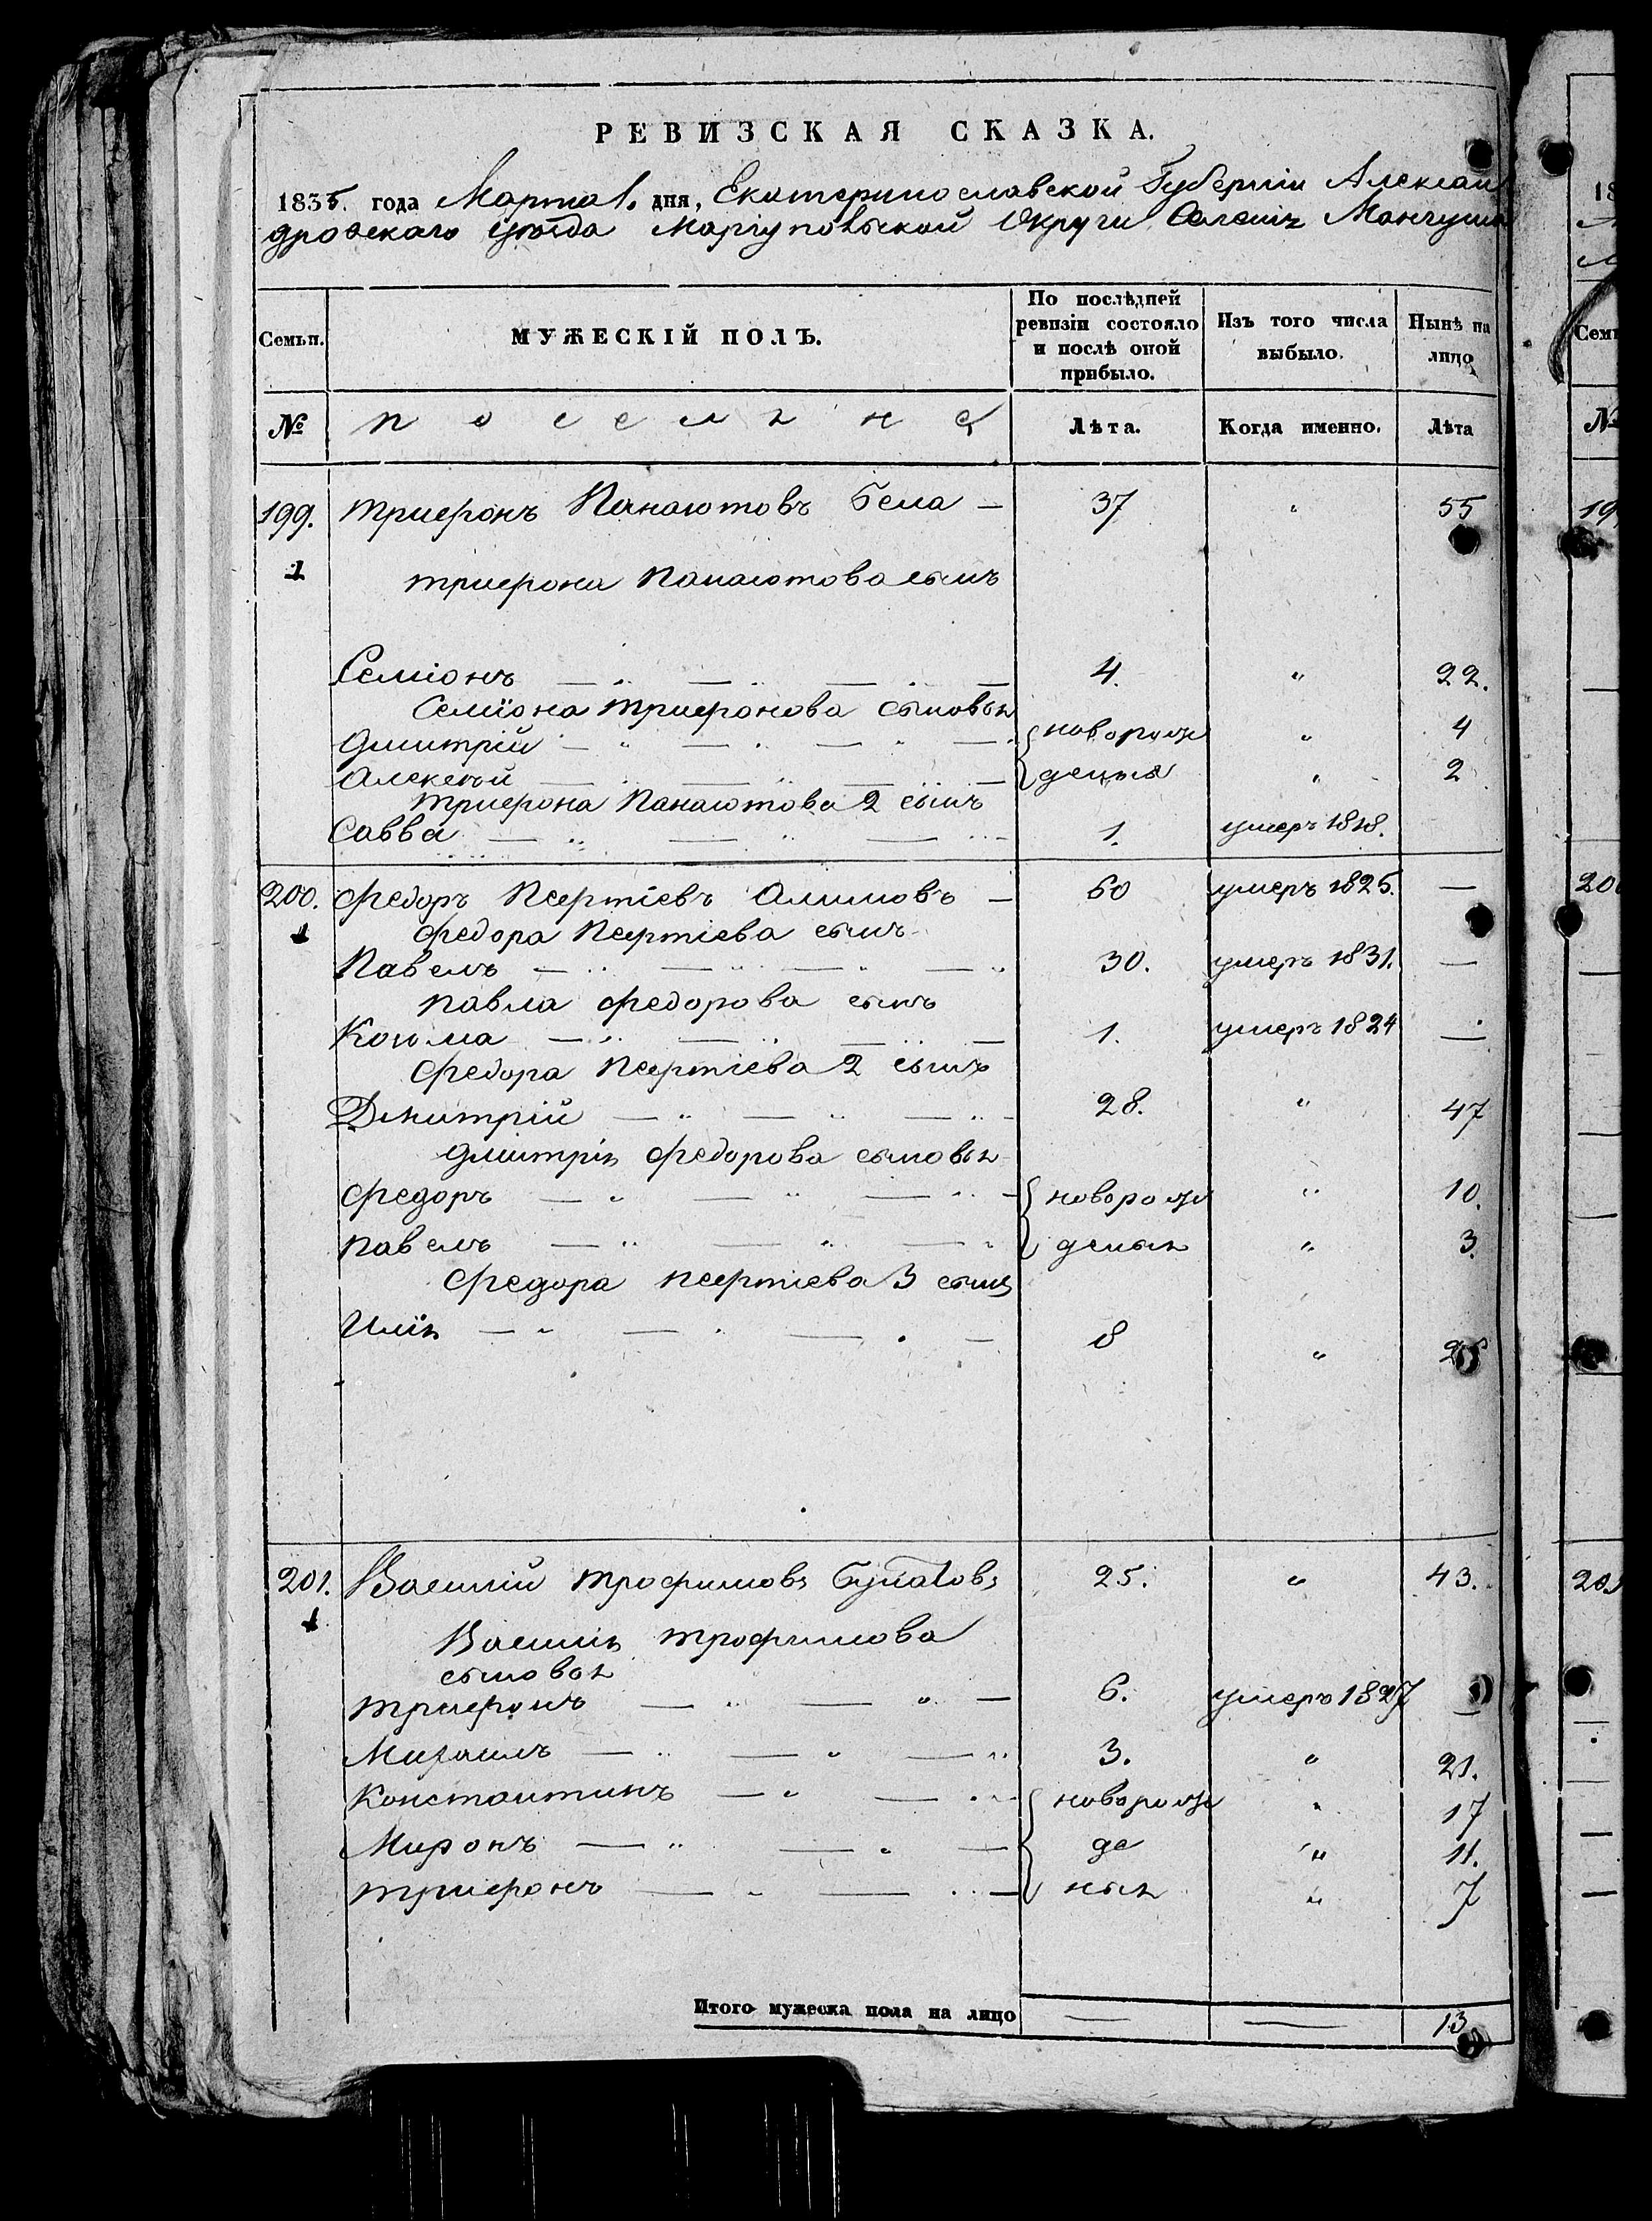 РЕВИЗСКАЯ СКАЗКА.
1835. года Марта 1. дня, Екатеринославской Губерніи Алексан
дровскаго уѣзда Маріупольской Округи Селенія Мангуша
Семьи. МУЖЕСКІЙ ПОЛЪ. По послѣдней ревизіи состояло и послѣ оной прибыло. Изъ того числа выбыло. Нынѣ на лицо
№ поселяне Лѣта. Когда именно. Лѣта
199. Трифонъ Панаютовъ Бела — 37 " 55
1 Трифона Панаютова сынъ
Семіонъ 4. " 22.
Семіона Трифонова сыновья
Дмитрій { новорож " 4
Алексѣй { денные " 2
Трифона Панаютова 2 сынъ
Савва 1. умеръ 1818.
200. Федоръ Псертіевъ 60 умеръ 1825. —
1 Федора Псертіева сынъ
Павелъ 30. умеръ 1831. —
Павла Федорова сынъ
Козьма 1. умеръ 1824 —
Федора Псертіева 2 сынъ
Дмитрій 28. " 47
Дмитрія Федорова сыновья
Федоръ { новорож " 10.
Павелъ { денныя " 3.
Федора Псертіева 3 сынъ
Илія 8 "
201. Василій Трофимовъ 25. " 43.
1 Василія Трофимова
сыновья
Трифонъ 6. умеръ 1827 —
Михаилъ 3. " 21.
Константинъ { новорож " 17
Миронъ де " 11.
Трифонъ { ныя " 7
Итого мужеска пола на лицо — — 13
18
Семьи
№
199
200
201